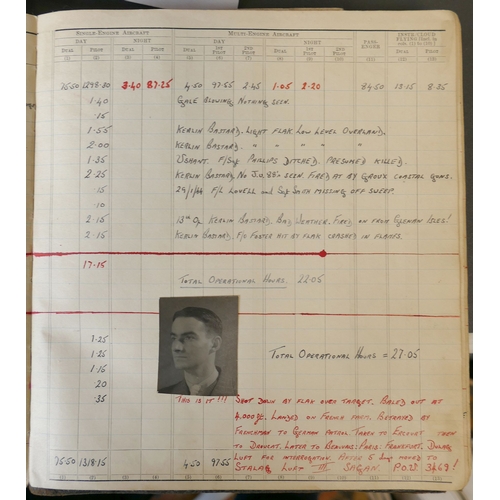 SINGLE-ENGINE AIRCRAFT MULTI-ENGINE AIRCRAFT PASS-ENGER INSTR/CLOUD FLYING [Incl. in cols. (1) to (10).]
DAY NIGHT DAY NIGHT
DUAL PILOT DUAL PILOT DUAL 1ST PILOT 2ND PILOT DUAL 1ST PILOT 2ND PILOT DUAL PILOT
(1) (2) (3) (4) (5) (6) (7) (8) (9) (10) (11) (12) (13)
75·50 1298·30 3·40 87·25 4·50 97·55 2·45 1·05 2·20 84·50 13·15 8·25
1·40 GALE BLOWING NOTHING SEEN.
·15
1·55 KERLIN BASTARD. LIGHT FLAK LOW LEVEL OVERLAND.
2·00 KERLIN BASTARD. " " " "
1·35 USHANT. F/SGT PHILLIPS DITCHED. PRESUMED KILLED.
2·25 KERLIN BASTARD. NO J.U. 88'S SEEN. FIRED AT BY GROUX COASTAL GUNS.
·15 29/1/44 F/L LOVELL and SGT SMITH MISSING OFF SWEEP.
·10
2·15 13TH OP KERLIN BASTARD. BAD WEATHER. FIRED ON FROM GERMAN ISLES!
2·15 KERLIN BASTARD. F/O FOSTER HIT BY FLAK CRASHED IN FLAMES.
17·15
TOTAL OPERATIONAL HOURS. 22·05
1·25
1·25 TOTAL OPERATIONAL HOURS = 27·05
1·15
·20
·35 THIS IS IT!!! SHOT DOWN BY FLAK OVER TARGET. BALED OUT AT
4,000 ft. LANDED ON FRENCH FARM. BETRAYED BY
FRENCHMAN TO GERMAN PATROL TAKEN TO THEN
TO LATER TO BEAUVAIS: PARIS: FRANKFURT, DULAG
LUFT FOR INTERROGATION. AFTER 5 MOVED TO
75·50 1318·15 4·50 97·55 STALAG LUFT III SAGAN. P.O.W. 3469!
(1) (2) (3) (4) (5) (6) (7) (8) (9) (10) (11) (12) (13)